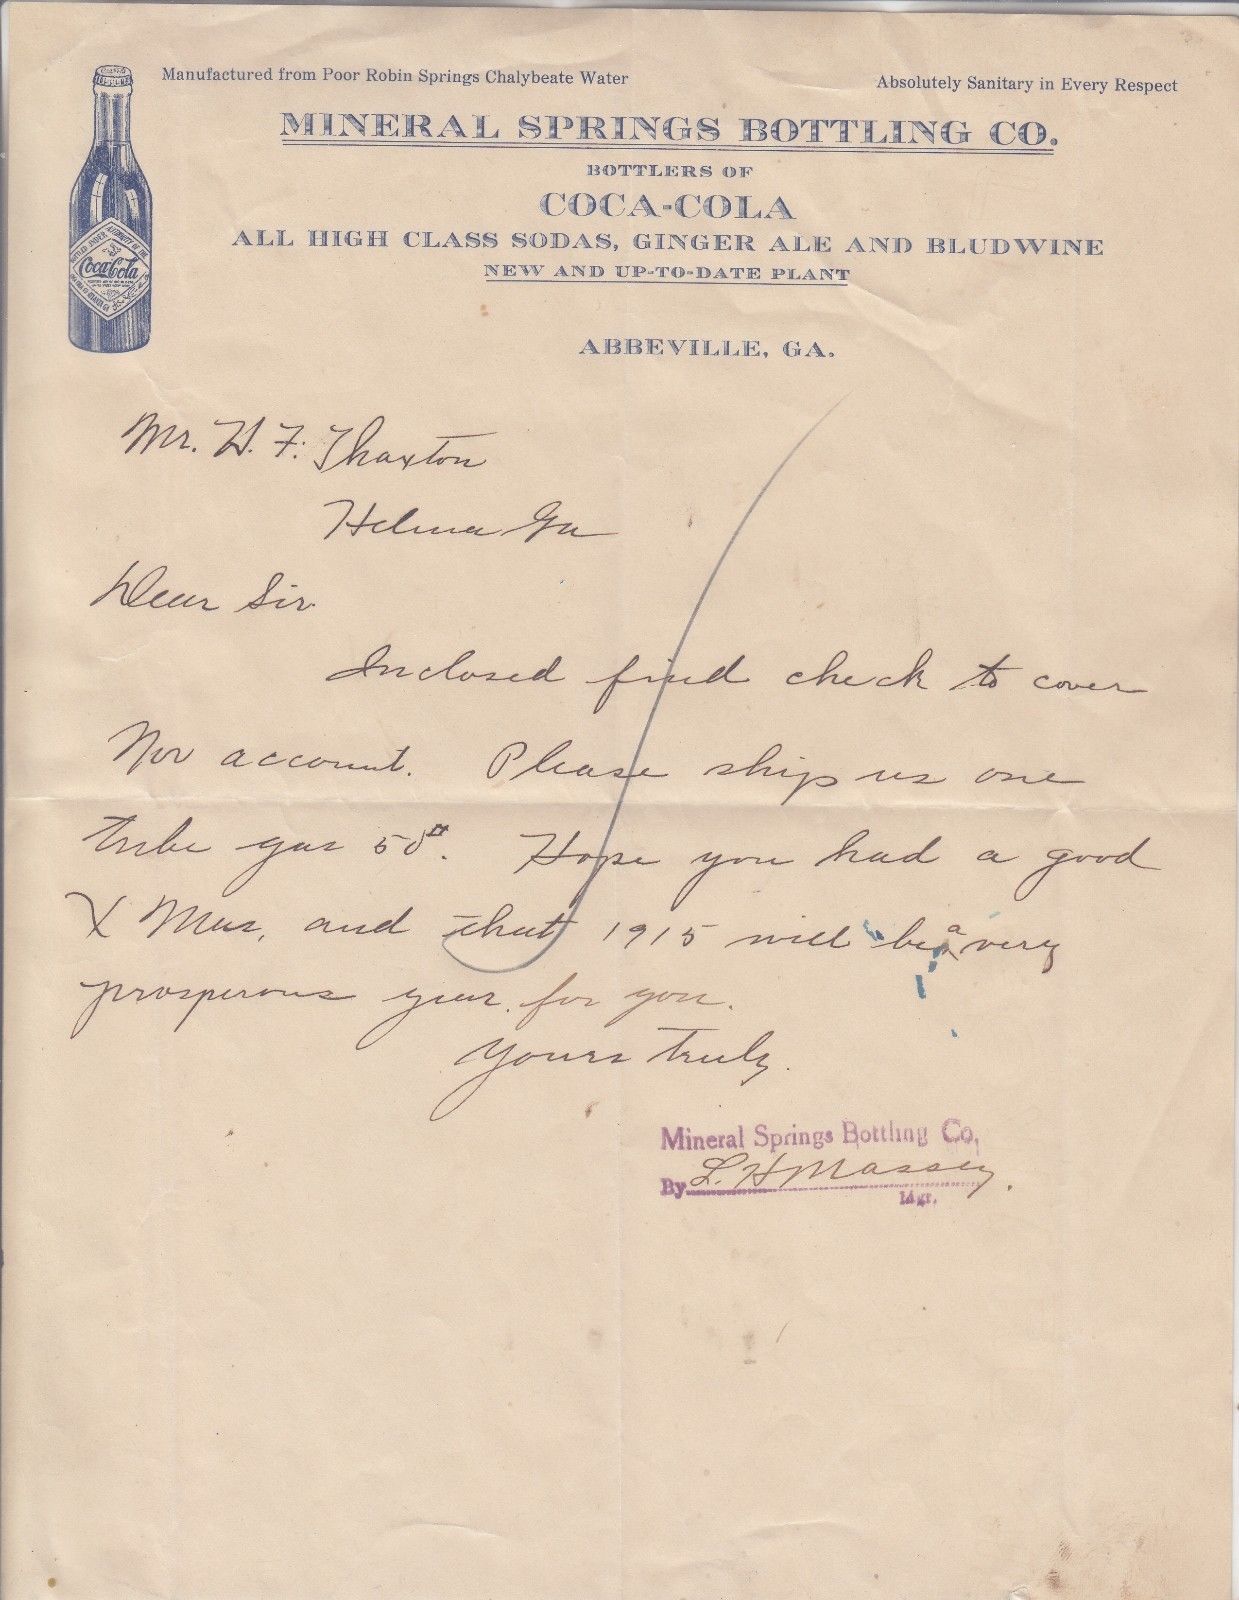 Manufactured from Poor Robin Springs Chalybeate Water
Absolutely Sanitary in Every Respect
MINERAL SPRINGS BOTTLING CO.
BOTTLERS OF
COCA-COLA
ALL HIGH CLASS SODAS, GINGER ALE AND BLUDWINE
NEW AND UP-TO-DATE PLANT
ABBEVILLE, GA.
Coca-Cola
Mr. H. F. Thaxton
Helena Ga
Dear Sir
Inclosed find check to cover
Nov account. Please ship us one
tube gas 50#. Hope you had a good
X Mas, and that 1915 will be a very
prosperous year. for you.
Yours Truly.
Mineral Springs Bottling Co.
By L. H Massey.
Mgr.